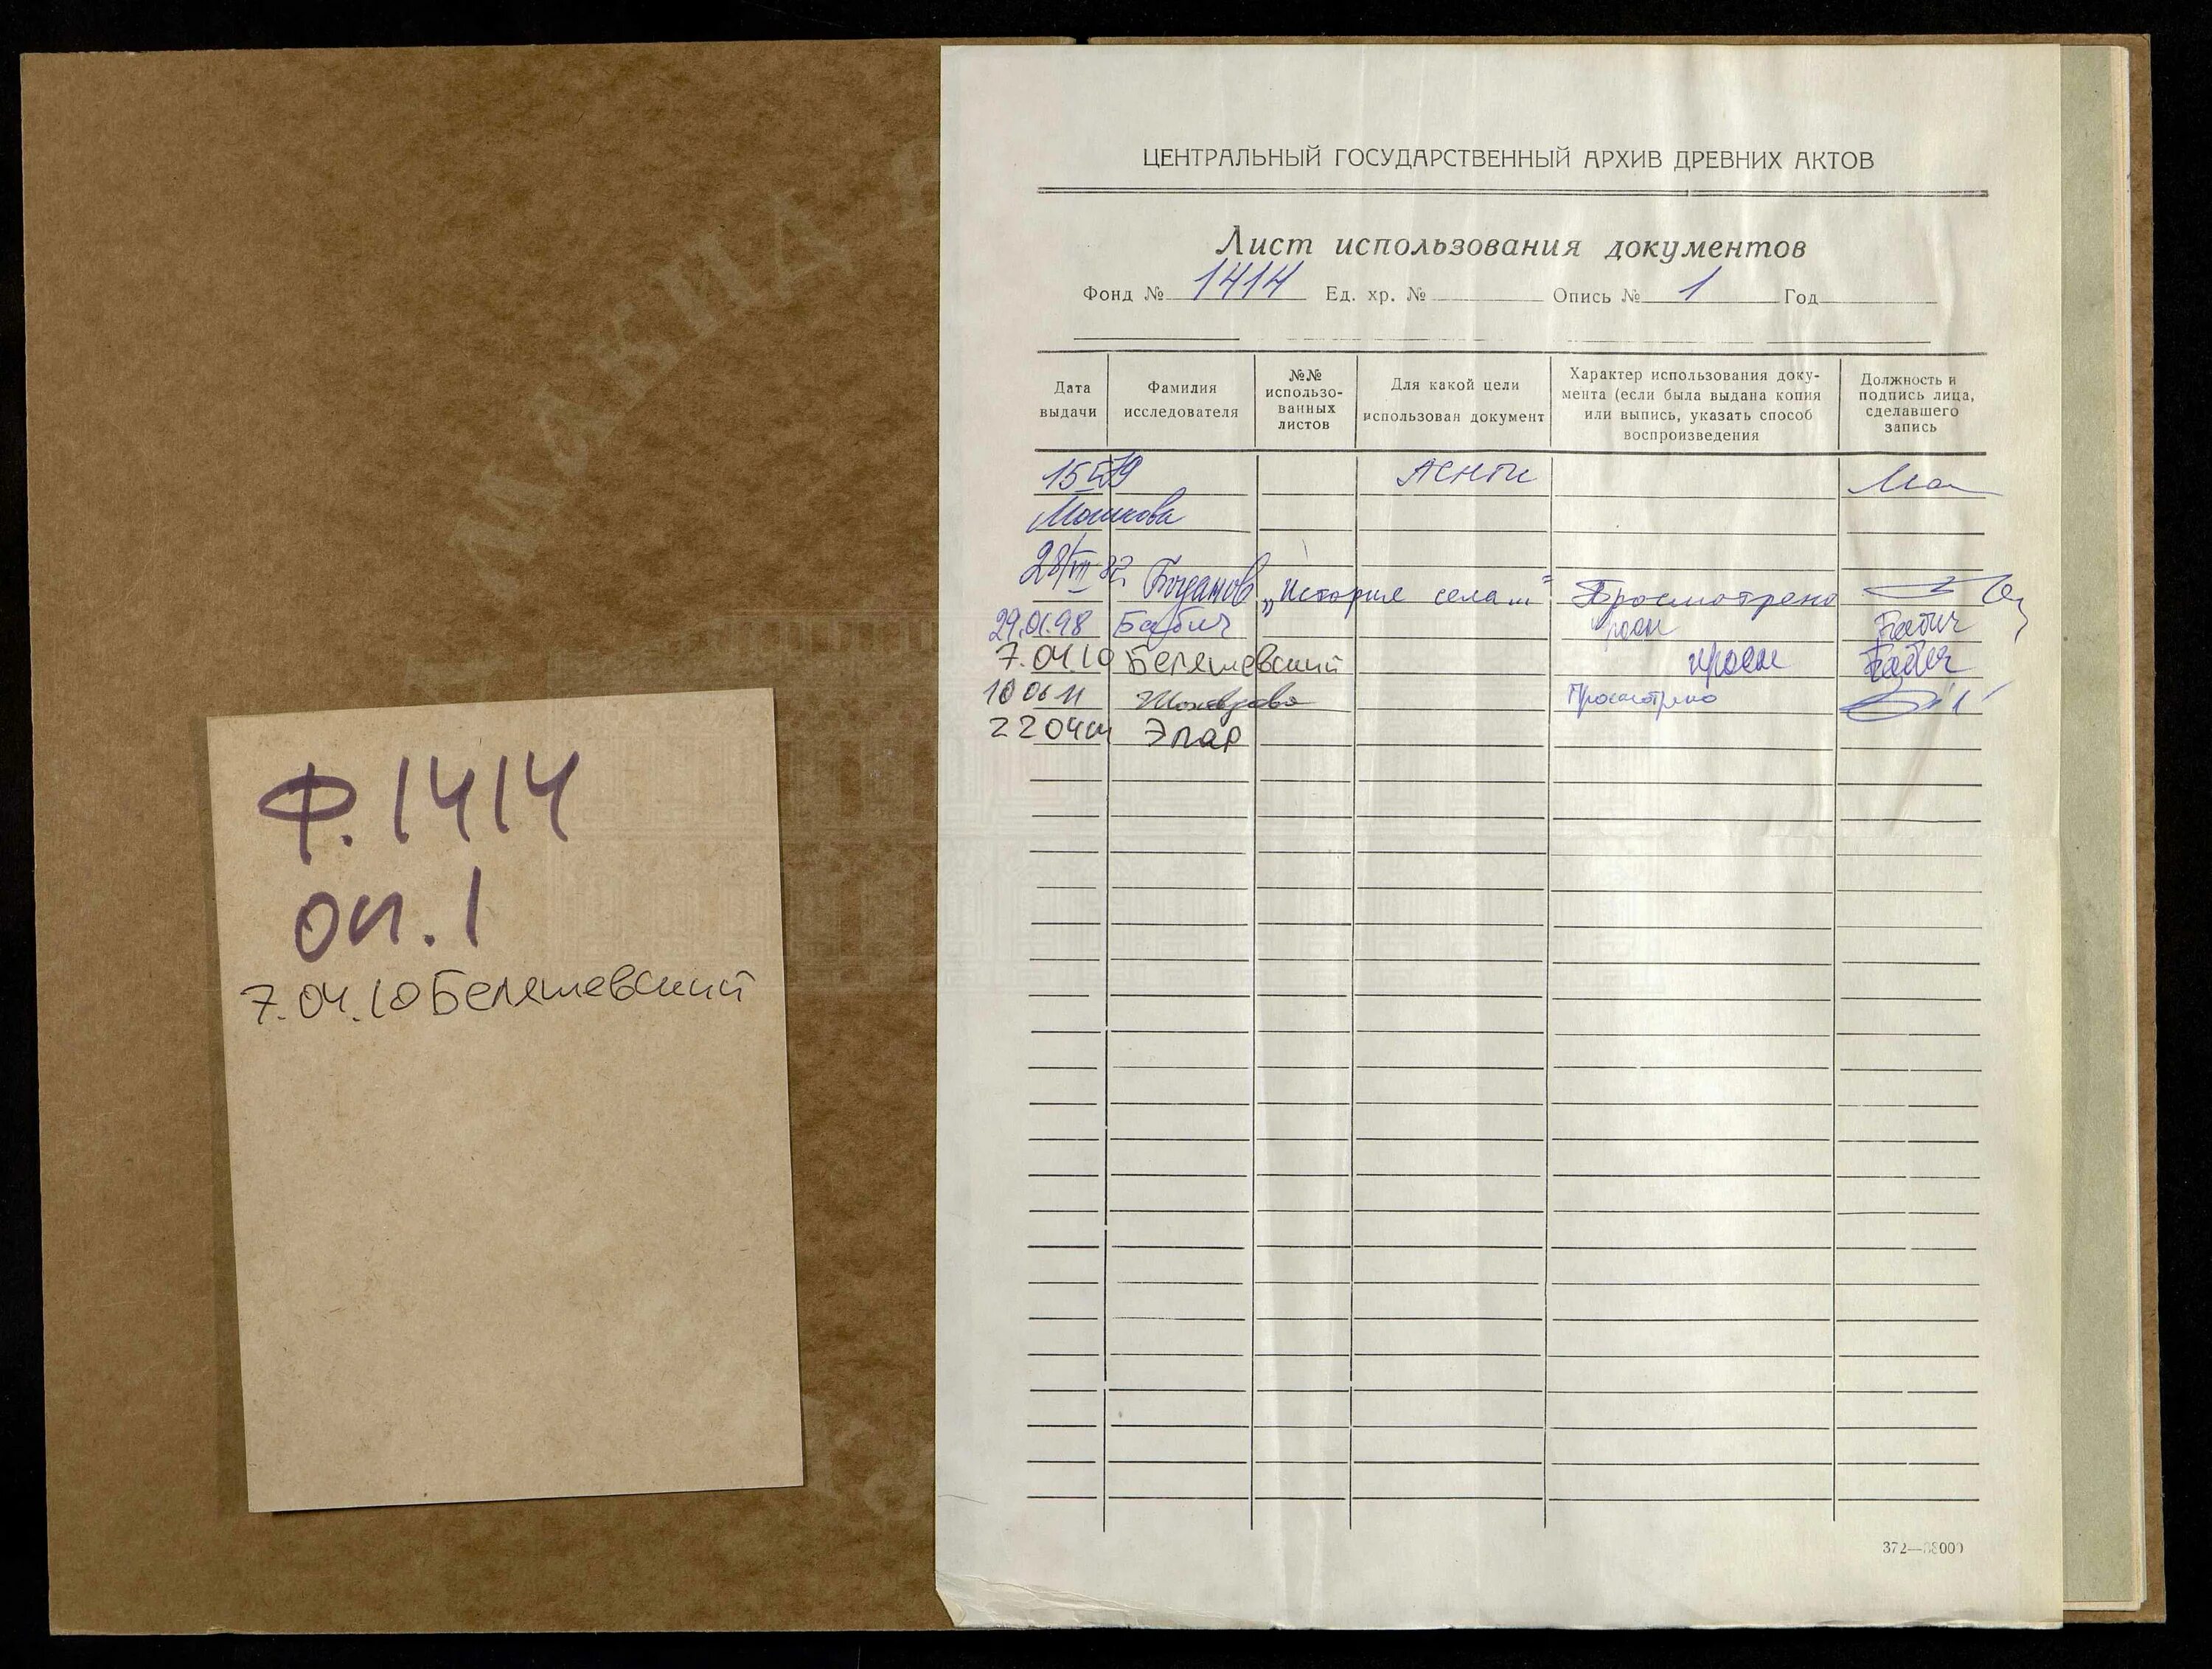 Ф. 1414
оп. 1
7.04.10 Беляшевский
ЦЕНТРАЛЬНЫЙ ГОСУДАРСТВЕННЫЙ АРХИВ ДРЕВНИХ АКТОВ
Лист использования документов
Фонд № 1414 Ед. хр. № Опись № 1 Год
Дата выдачи
Фамилия исследователя
№№ использо-ванных листов
Для какой цели использован документ
Характер использования доку-мента (если была выдана копия или выпись, указать способ воспроизведения
Должность и подпись лица, сделавшего запись
АСНТИ
Мошкова
28/VII 82 Богданов „История села..." Просмотрено
29.01.98 Бабич Бабич
7.04.10 Беляшевский просм Бабич
10 06 11 Просмотрено
22 04 Эпар